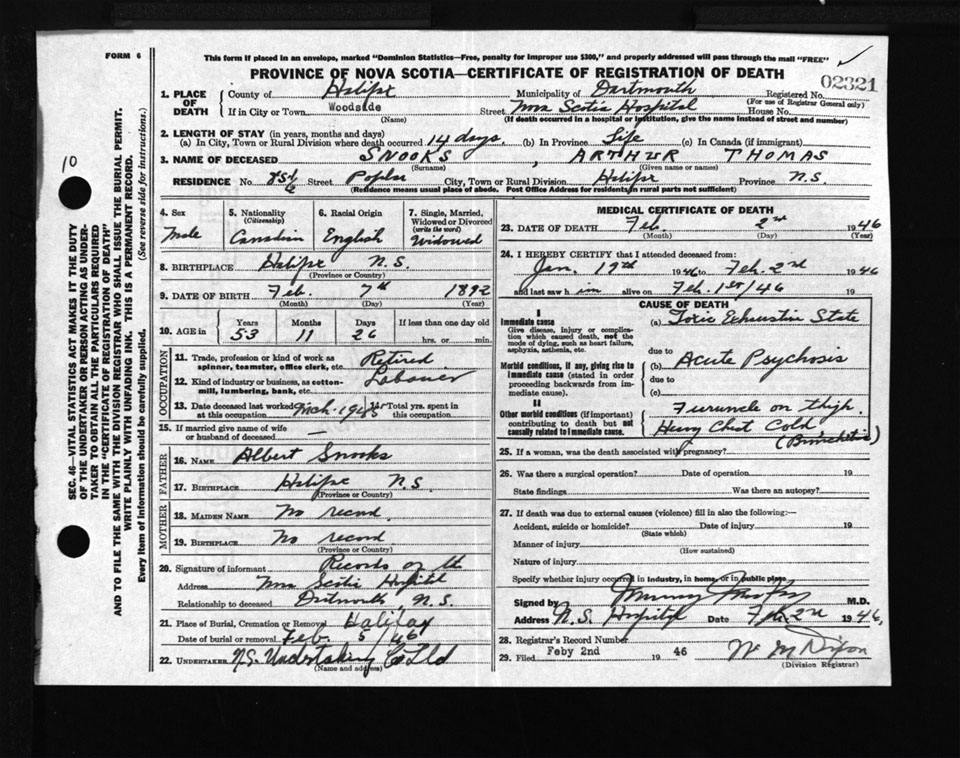 FORM 6
This form if placed in an envelope, marked "Dominion Statistics—Free, penalty for improper use $300," and properly addressed will pass through the mail "FREE"
PROVINCE OF NOVA SCOTIA—CERTIFICATE OF REGISTRATION OF DEATH
02321
1. PLACE OF DEATH
County of Halifax Municipality of Dartmouth Registered No.
(For use of Registrar General only)
If in City or Town Woodside Street Nova Scotia Hospital House No.
(Name) (If death occurred in a hospital or institution, give the name instead of street and number)
2. LENGTH OF STAY (in years, months and days)
(a) In City, Town or Rural Division where death occurred 14 days. (b) In Province Life (c) In Canada (if immigrant)
3. NAME OF DECEASED SNOOKS, ARTHUR THOMAS
(Surname) (Given name or names)
RESIDENCE No. Street City, Town or Rural Division Halifax Province N.S.
(Residence means usual place of abode. Post Office Address for residents in rural parts not sufficient)
4. Sex Male
5. Nationality (Citizenship) Canadian
6. Racial Origin English
7. Single, Married, Widowed or Divorced (write the word) Widowed
8. BIRTHPLACE Halifax N.S.
(Province or Country)
9. DATE OF BIRTH Feb. 7th 1892
(Month) (Day) (Year)
10. AGE in Years 53 Months 11 Days 26 If less than one day old hrs. or min.
OCCUPATION
11. Trade, profession or kind of work as spinner, teamster, office clerk, etc. Retired
12. Kind of industry or business, as cotton-mill, lumbering, bank, etc. Labourer
13. Date deceased last worked at this occupation Mch. Total yrs. spent in this occupation
15. If married give name of wife or husband of deceased —
FATHER
16. NAME Albert Snooks
17. BIRTHPLACE Halifax N.S.
(Province or Country)
MOTHER
18. MAIDEN NAME No record
19. BIRTHPLACE No record
(Province or Country)
20. Signature of informant Records of the
Address Nova Scotia Hospital
Relationship to deceased Dartmouth N.S.
21. Place of Burial, Cremation or Removal Halifax
Date of burial or removal Feb. 5/46
22. UNDERTAKER N.S. Undertaking Co Ltd
(Name and address)
MEDICAL CERTIFICATE OF DEATH
23. DATE OF DEATH Feb. 2nd 1946
(Month) (Day) (Year)
24. I HEREBY CERTIFY that I attended deceased from:
Jan. 19th 1946 to Feb. 2nd 1946
and last saw him alive on Feb. 1st/46 19
CAUSE OF DEATH
I
Immediate cause
Give disease, injury or complication which caused death, not the mode of dying, such as heart failure, asphyxia, asthenia, etc.
(a) Toxic Exhaustion State
due to
Morbid conditions, if any, giving rise to immediate cause (stated in order proceeding backwards from immediate cause).
(b) Acute Psychosis
due to
(c)
II
Other morbid conditions (if important) contributing to death but not causally related to immediate cause.
Furuncle on thigh.
Heavy Chest Cold
(Bronchitis)
25. If a woman, was the death associated with pregnancy?
26. Was there a surgical operation? Date of operation 19
State findings Was there an autopsy?
27. If death was due to external causes (violence) fill in also the following:—
Accident, suicide or homicide? Date of injury 19
(State which)
Manner of injury
(How sustained)
Nature of injury
Specify whether injury occurred in industry, in home, or in public place
Signed by M.D.
Address N.S. Hospital Date Feb. 2nd 1946,
28. Registrar's Record Number
29. Filed Feby 2nd 19 46 W M Dixon
(Division Registrar)
SEC. 46—VITAL STATISTICS ACT MAKES IT THE DUTY OF THE UNDERTAKER OR PERSON ACTING AS UNDERTAKER TO OBTAIN ALL THE PARTICULARS REQUIRED IN THE "CERTIFICATE OF REGISTRATION OF DEATH" AND TO FILE THE SAME WITH THE DIVISION REGISTRAR WHO SHALL ISSUE THE BURIAL PERMIT.
WRITE PLAINLY WITH UNFADING INK. THIS IS A PERMANENT RECORD.
Every item of information should be carefully supplied. (See reverse side for instructions.)
10